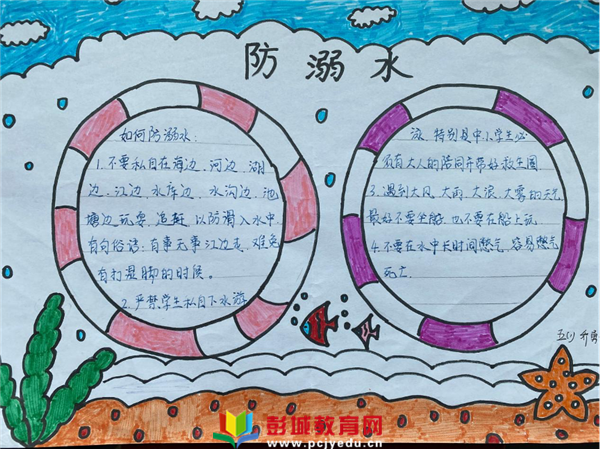 防溺水
如何防溺水:
1.不要私自在海边、河边、湖
边、江边、水库边、水沟边、池
塘边玩耍、追赶,以防滑入水中
有句俗话:有事无事江边走,难免
有打湿脚的时候。
2.严禁学生私自下水游
泳,特别是中小学生必
须有大人的陪同并带好救生圈
3.遇到大风、大雨、大浪、大雾的天气
最好不要坐船,也不要在船上玩
4.不要在水中长时间憋气,容易憋气
死亡
五(1)
彭城教育网
www.pcjyedu.cn